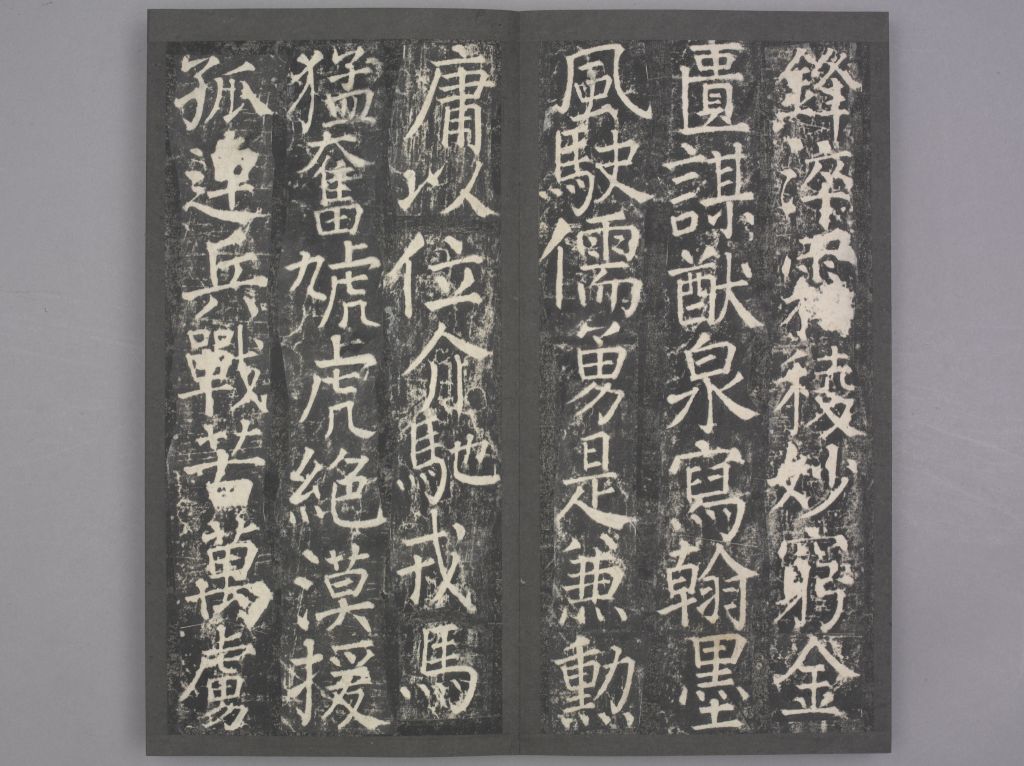 鋒淬霜稜妙窮金
匱謀猷泉寫翰墨
風駛儒勇是兼勳
庸以位俞馳戎馬
猛奮虓虎絕漠援
孤連兵戰苦萬虜